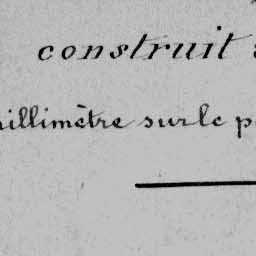 construit
millimètre sur le p